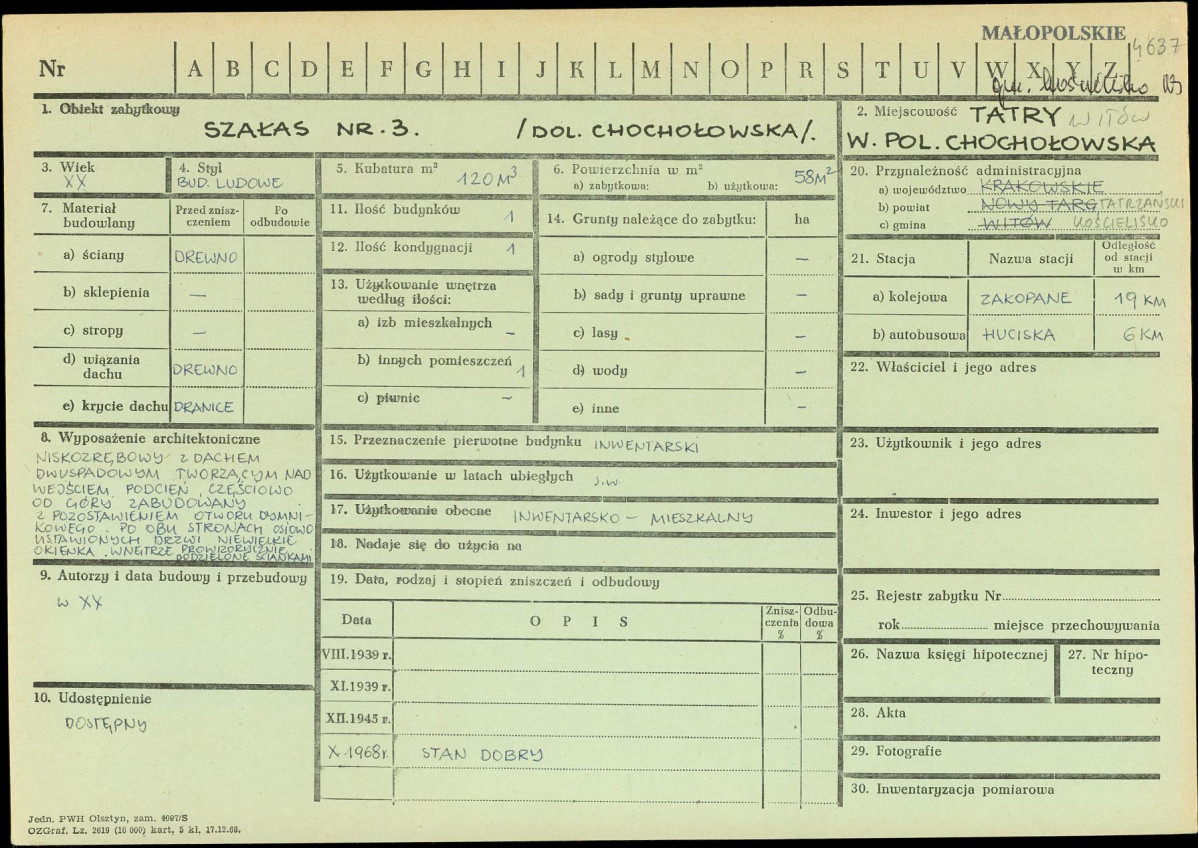 MAŁOPOLSKIE
4637
Nr A B C D E F G H I J K L M N O P R S T U V W X Y Z
gm. Kościelisko
1. Obiekt zabytkowy
SZAŁAS NR. 3. /DOL. CHOCHOŁOWSKA/.
2. Miejscowość TATRY WITÓW
W. POL. CHOCHOŁOWSKA
3. Wiek
XX
4. Styl
BUD. LUDOWE
5. Kubatura m³
120 M³
6. Powierzchnia w m²
a) zabytkowa: b) użytkowa: 58M²
7. Materiał budowlany
Przed zniszczeniem
Po odbudowie
a) ściany DREWNO
b) sklepienia —
c) stropy —
d) wiązania dachu DREWNO
e) krycie dachu DRANICE
8. Wyposażenie architektoniczne
NISKOZRĘBOWY Z DACHEM
DWUSPADOWYM TWORZĄCYM NAD
WEJŚCIEM PODCIEŃ, CZĘŚCIOWO
OD GÓRY ZABUDOWANY
Z POZOSTAWIENIEM OTWORU DYMNI-
KOWEGO. PO OBU STRONACH OSIOWO
USTAWIONYCH DRZWI NIEWIELKIE
OKIENKA. WNĘTRZE PROWIZORYCZNIE
PODZIELONE ŚCIANKAMI
9. Autorzy i data budowy i przebudowy
W XX
10. Udostępnienie
DOSTĘPNY
11. Ilość budynków 1
12. Ilość kondygnacji 1
13. Użytkowanie wnętrza
według ilości:
a) izb mieszkalnych –
b) innych pomieszczeń 1
c) piwnic –
14. Grunty należące do zabytku: ha
a) ogrody stylowe —
b) sady i grunty uprawne —
c) lasy —
d) wody —
e) inne —
15. Przeznaczenie pierwotne budynku INWENTARSKI
16. Użytkowanie w latach ubiegłych J.W.
17. Użytkowanie obecne INWENTARSKO – MIESZKALNY
18. Nadaje się do użycia na
19. Data, rodzaj i stopień zniszczeń i odbudowy
Data
O P I S
Znisz-
czenia
%
Odbu-
dowa
%
VIII.1939 r.
XI.1939 r.
XII.1945 r.
X.1968r. STAN DOBRY
20. Przynależność administracyjna
a) województwo KRAKOWSKIE
b) powiat NOWY TARG TATRZAŃSKI
c) gmina WITÓW KOŚCIELISKO
21. Stacja
Nazwa stacji
Odległość
od stacji
w km
a) kolejowa ZAKOPANE 19 KM
b) autobusowa HUCISKA 6 KM
22. Właściciel i jego adres
23. Użytkownik i jego adres
24. Inwestor i jego adres
25. Rejestr zabytku Nr
rok miejsce przechowywania
26. Nazwa księgi hipotecznej
27. Nr hipo-
teczny
28. Akta
29. Fotografie
30. Inwentaryzacja pomiarowa
Jedn. PWH Olsztyn, zam. 4097/S
OZGraf. Lz. 2619 (10 000) kart, 5 kl. 17.12.68.